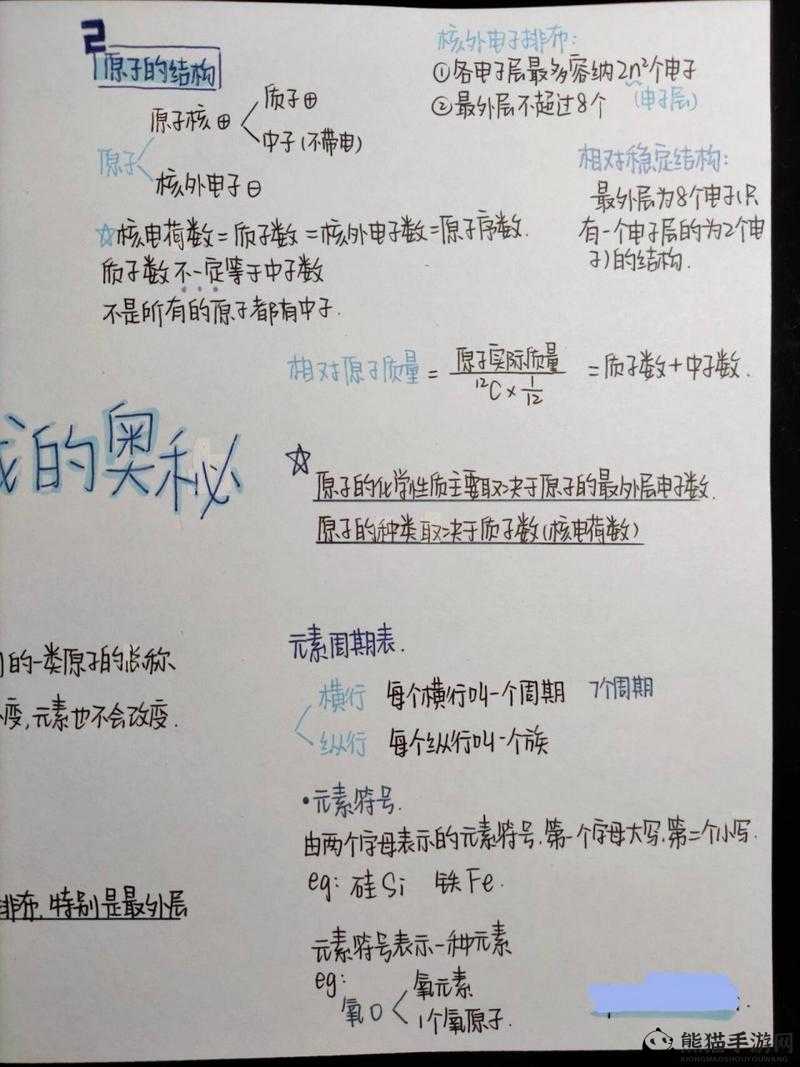 2
原子的结构
原子
原子核⊕
质子⊕
中子(不带电)
核外电子⊖
核外电子排布:
①各电子层最多容纳2n²个电子
②最外层不超过8个 (电子层)
相对稳定结构:
最外层为8个电子(只
有一个电子层的为2个电
子)的结构.
☆核电荷数=质子数=核外电子数=原子序数.
质子数不一定等于中子数
不是所有的原子都有中子.
相对原子质量 = 原子实际质量 / ¹²C×1/12 = 质子数+中子数.
的奥秘
☆原子的化学性质主要取决于原子的最外层电子数.
原子的种类取决于质子数(核电荷数)
的一类原子的总称
变,元素也不会改变.
排布,特别是最外层
元素周期表.
横行 每个横行叫一个周期 7个周期
纵行 每个纵行叫一个族
•元素符号.
由两个字母表示的元素符号,第一个字母大写,第二个小写.
eg: 硅Si 铁Fe.
元素符号表示一种元素
eg:
氧O
氧元素
1个氧原子.
熊猫手游网
XIONGMAOSHOUYOUWANG